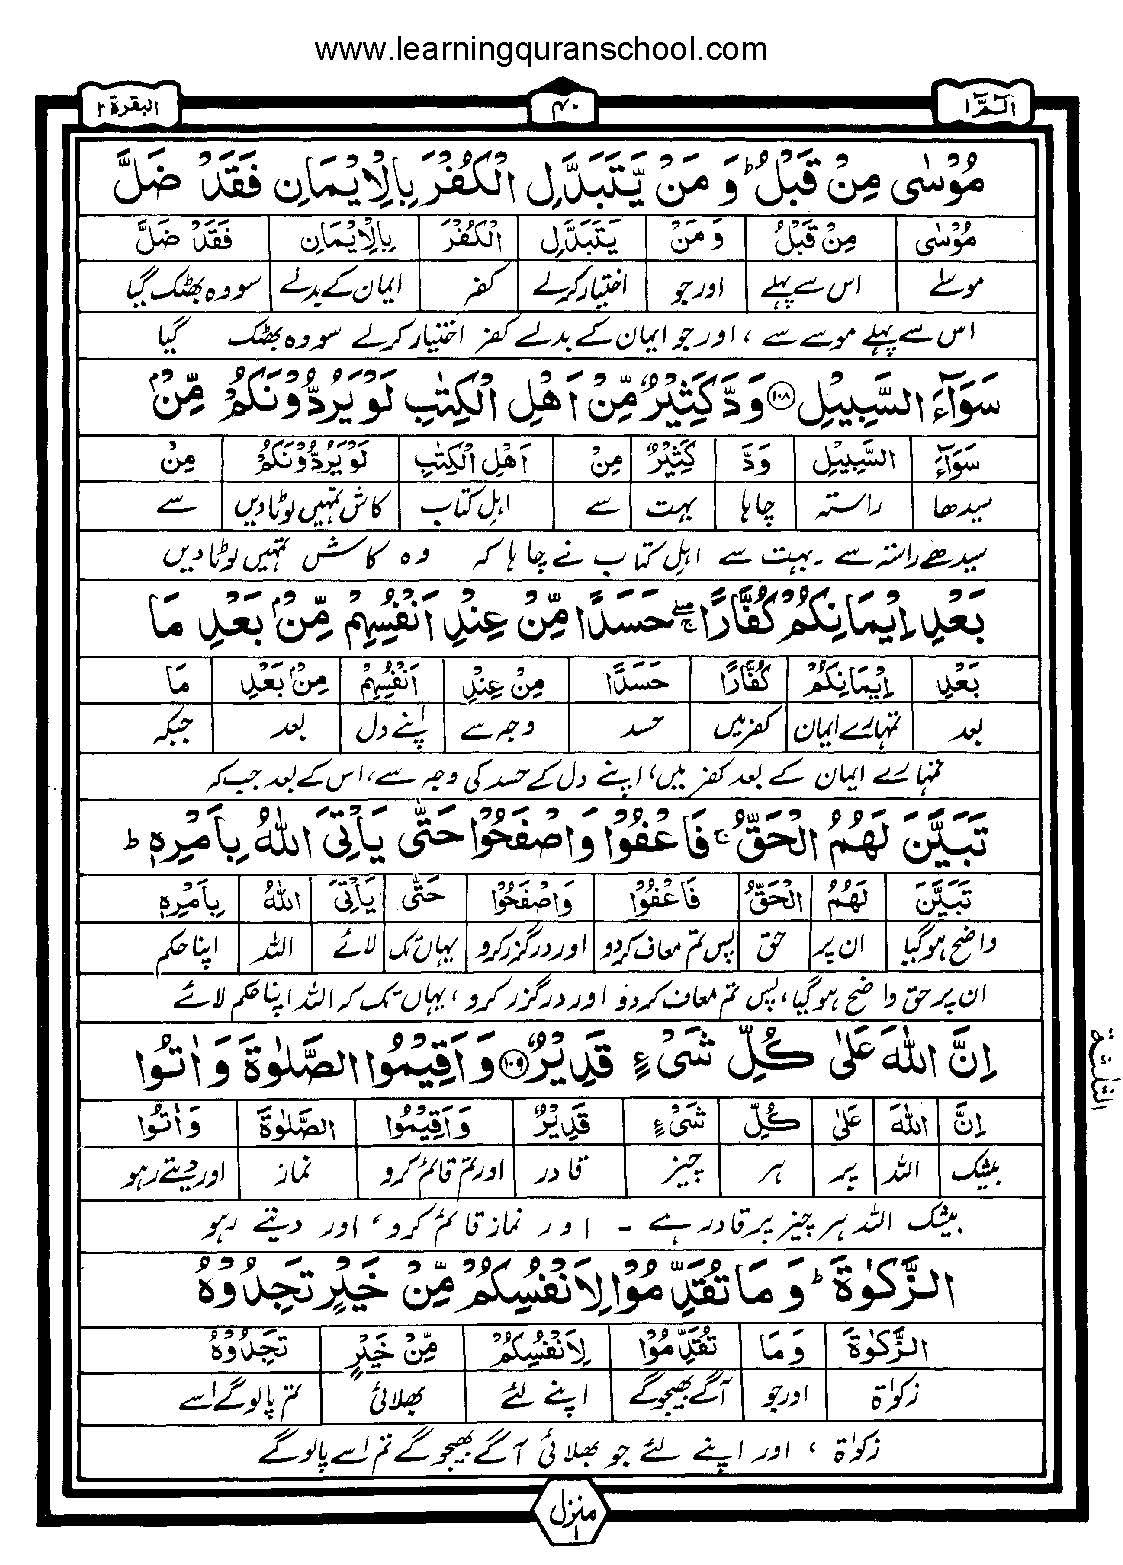 www.learningquranschool.com
الٓمّٓ ١ ۴۰ البقرة ٢
مُوْسٰى مِنْ قَبْلُ ؕ وَ مَنْ يَّتَبَدَّلِ الْكُفْرَ بِالْاِيْمَانِ فَقَدْ ضَلَّ
مُوْسٰى مِنْ قَبْلُ وَ مَنْ يَتَبَدَّلِ الْكُفْرَ بِالْاِيْمَانِ فَقَدْ ضَلَّ
موسٰے اس سے پہلے اور جو اختیار کرلے کفر ایمان کے بدلے سو وہ بھٹک گیا
اس سے پہلے موسے سے ، اور جو ایمان کے بدلے کفر اختیار کرلے سو وہ بھٹک گیا
سَوَآءَ السَّبِيْلِ ۱۰۸ وَدَّ كَثِيْرٌ مِّنْ اَهْلِ الْكِتٰبِ لَوْ يَرُدُّوْنَكُمْ مِّنْۢ
سَوَآءَ السَّبِيْلِ وَدَّ كَثِيْرٌ مِنْ اَهْلِ الْكِتٰبِ لَوْ يَرُدُّوْنَكُمْ مِنْ
سیدھا راستہ چاہا بہت سے اہل کتاب کاش تمہیں لوٹا دیں سے
سیدھے راستہ سے ۔ بہت سے اہل کتاب نے چاہا کہ وہ کاش تمہیں لوٹا دیں
بَعْدِ اِيْمَانِكُمْ كُفَّارًا ۖۚ حَسَدًا مِّنْ عِنْدِ اَنْفُسِهِمْ مِّنْۢ بَعْدِ مَا
بَعْدِ اِيْمَانِكُمْ كُفَّارًا حَسَدًا مِنْ عِنْدِ اَنْفُسِهِمْ مِنْۢ بَعْدِ مَا
بعد تمہارے ایمان کفر میں حسد وجہ سے اپنے دل بعد جبکہ
تمہارے ایمان کے بعد کفر میں، اپنے دل کے حسد کی وجہ سے، اس کے بعد جب کہ
تَبَيَّنَ لَهُمُ الْحَقُّ ۚ فَاعْفُوْا وَاصْفَحُوْا حَتّٰى يَاْتِىَ اللّٰهُ بِاَمْرِهٖ ؕ
تَبَيَّنَ لَهُمُ الْحَقُّ فَاعْفُوْا وَاصْفَحُوْا حَتّٰى يَاْتِىَ اللّٰهُ بِاَمْرِهٖ
واضح ہوگیا ان پر حق پس تم معاف کردو اور درگزر کرو یہاں تک لائے اللہ اپنا حکم
ان پر حق واضح ہوگیا، پس تم معاف کردو اور درگزر کرو ، یہاں تک کہ اللہ اپنا حکم لائے
اِنَّ اللّٰهَ عَلٰى كُلِّ شَىْءٍ قَدِيْرٌ ۱۰۹ وَ اَقِيْمُوا الصَّلٰوةَ وَ اٰتُوا
اِنَّ اللّٰهَ عَلٰى كُلِّ شَىْءٍ قَدِيْرٌ وَ اَقِيْمُوا الصَّلٰوةَ وَ اٰتُوا
بیشک اللہ پر ہر چیز قادر اور تم قائم کرو نماز اور دیتے رہو
بیشک اللہ ہر چیز پر قادر ہے ۔ اور نماز قائم کرو ، اور دیتے رہو
الزَّكٰوةَ ؕ وَ مَا تُقَدِّمُوْا لِاَنْفُسِكُمْ مِّنْ خَيْرٍ تَجِدُوْهُ
الزَّكٰوةَ وَ مَا تُقَدِّمُوْا لِاَنْفُسِكُمْ مِّنْ خَيْرٍ تَجِدُوْهُ
زکوٰۃ اور جو آگے بھیجو گے اپنے لئے بھلائی تم پالو گے اسے
زکوٰۃ ، اور اپنے لئے جو بھلائی آگے بھیجو گے تم اسے پالو گے
منزل ١
الثلثة